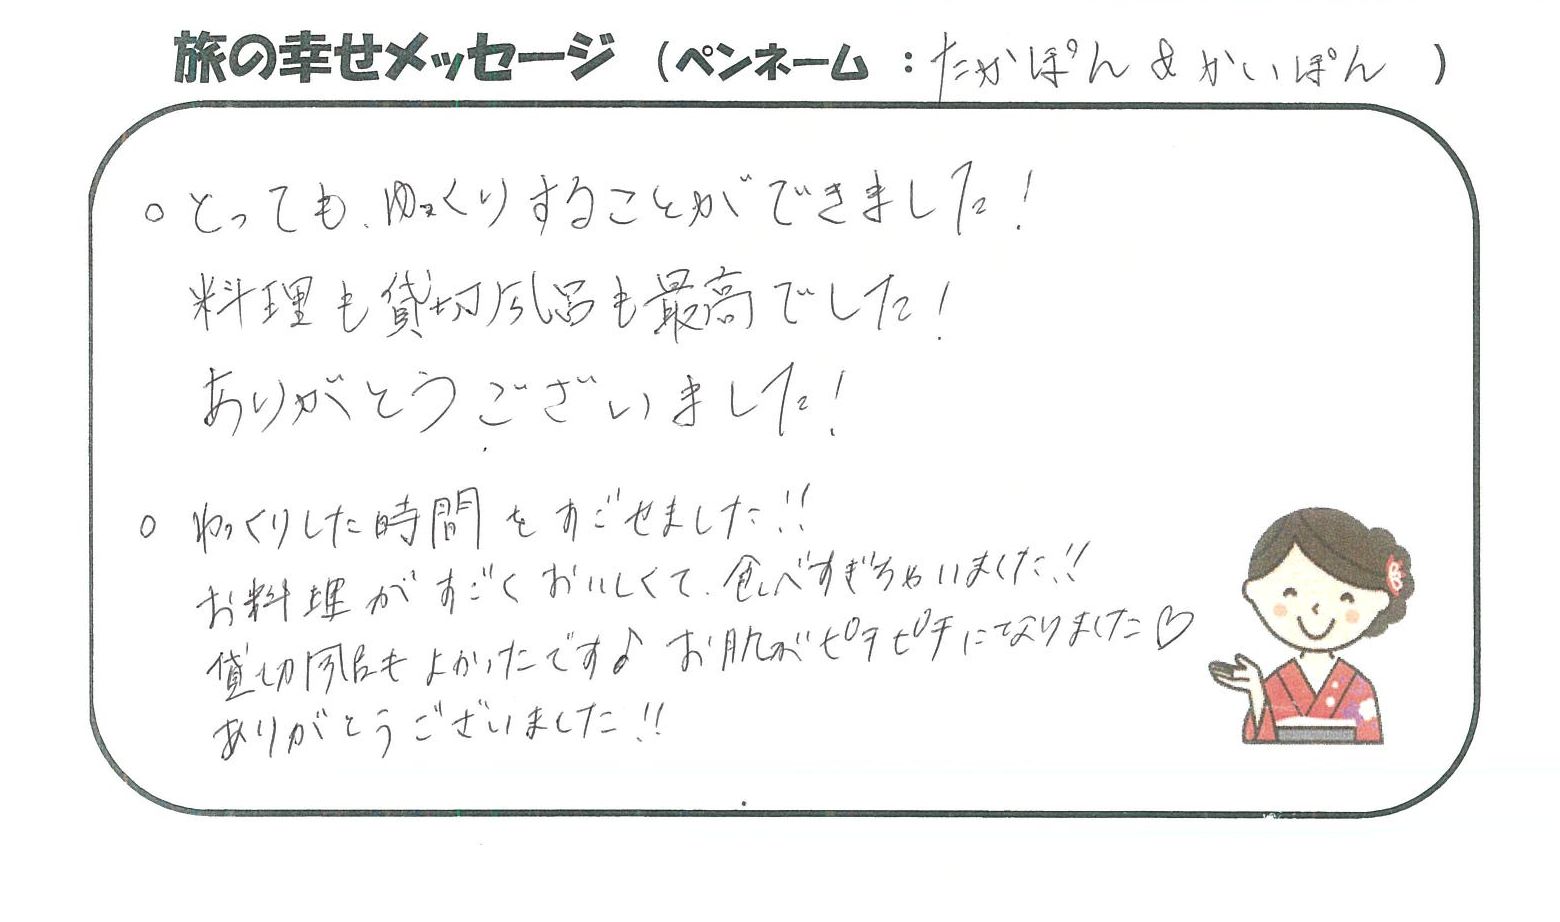 旅の幸せメッセージ (ペンネーム : たかぽん & かいぽん )
○ とっても、ゆっくりすることができました!
料理も貸切風呂も最高でした!
ありがとうございました!
○ ゆっくりした時間をすごせました!!
お料理がすごくおいしくて、食べすぎちゃいました!!
貸切風呂もよかったです♪ お肌がピチピチになりました♡
ありがとうございました!!